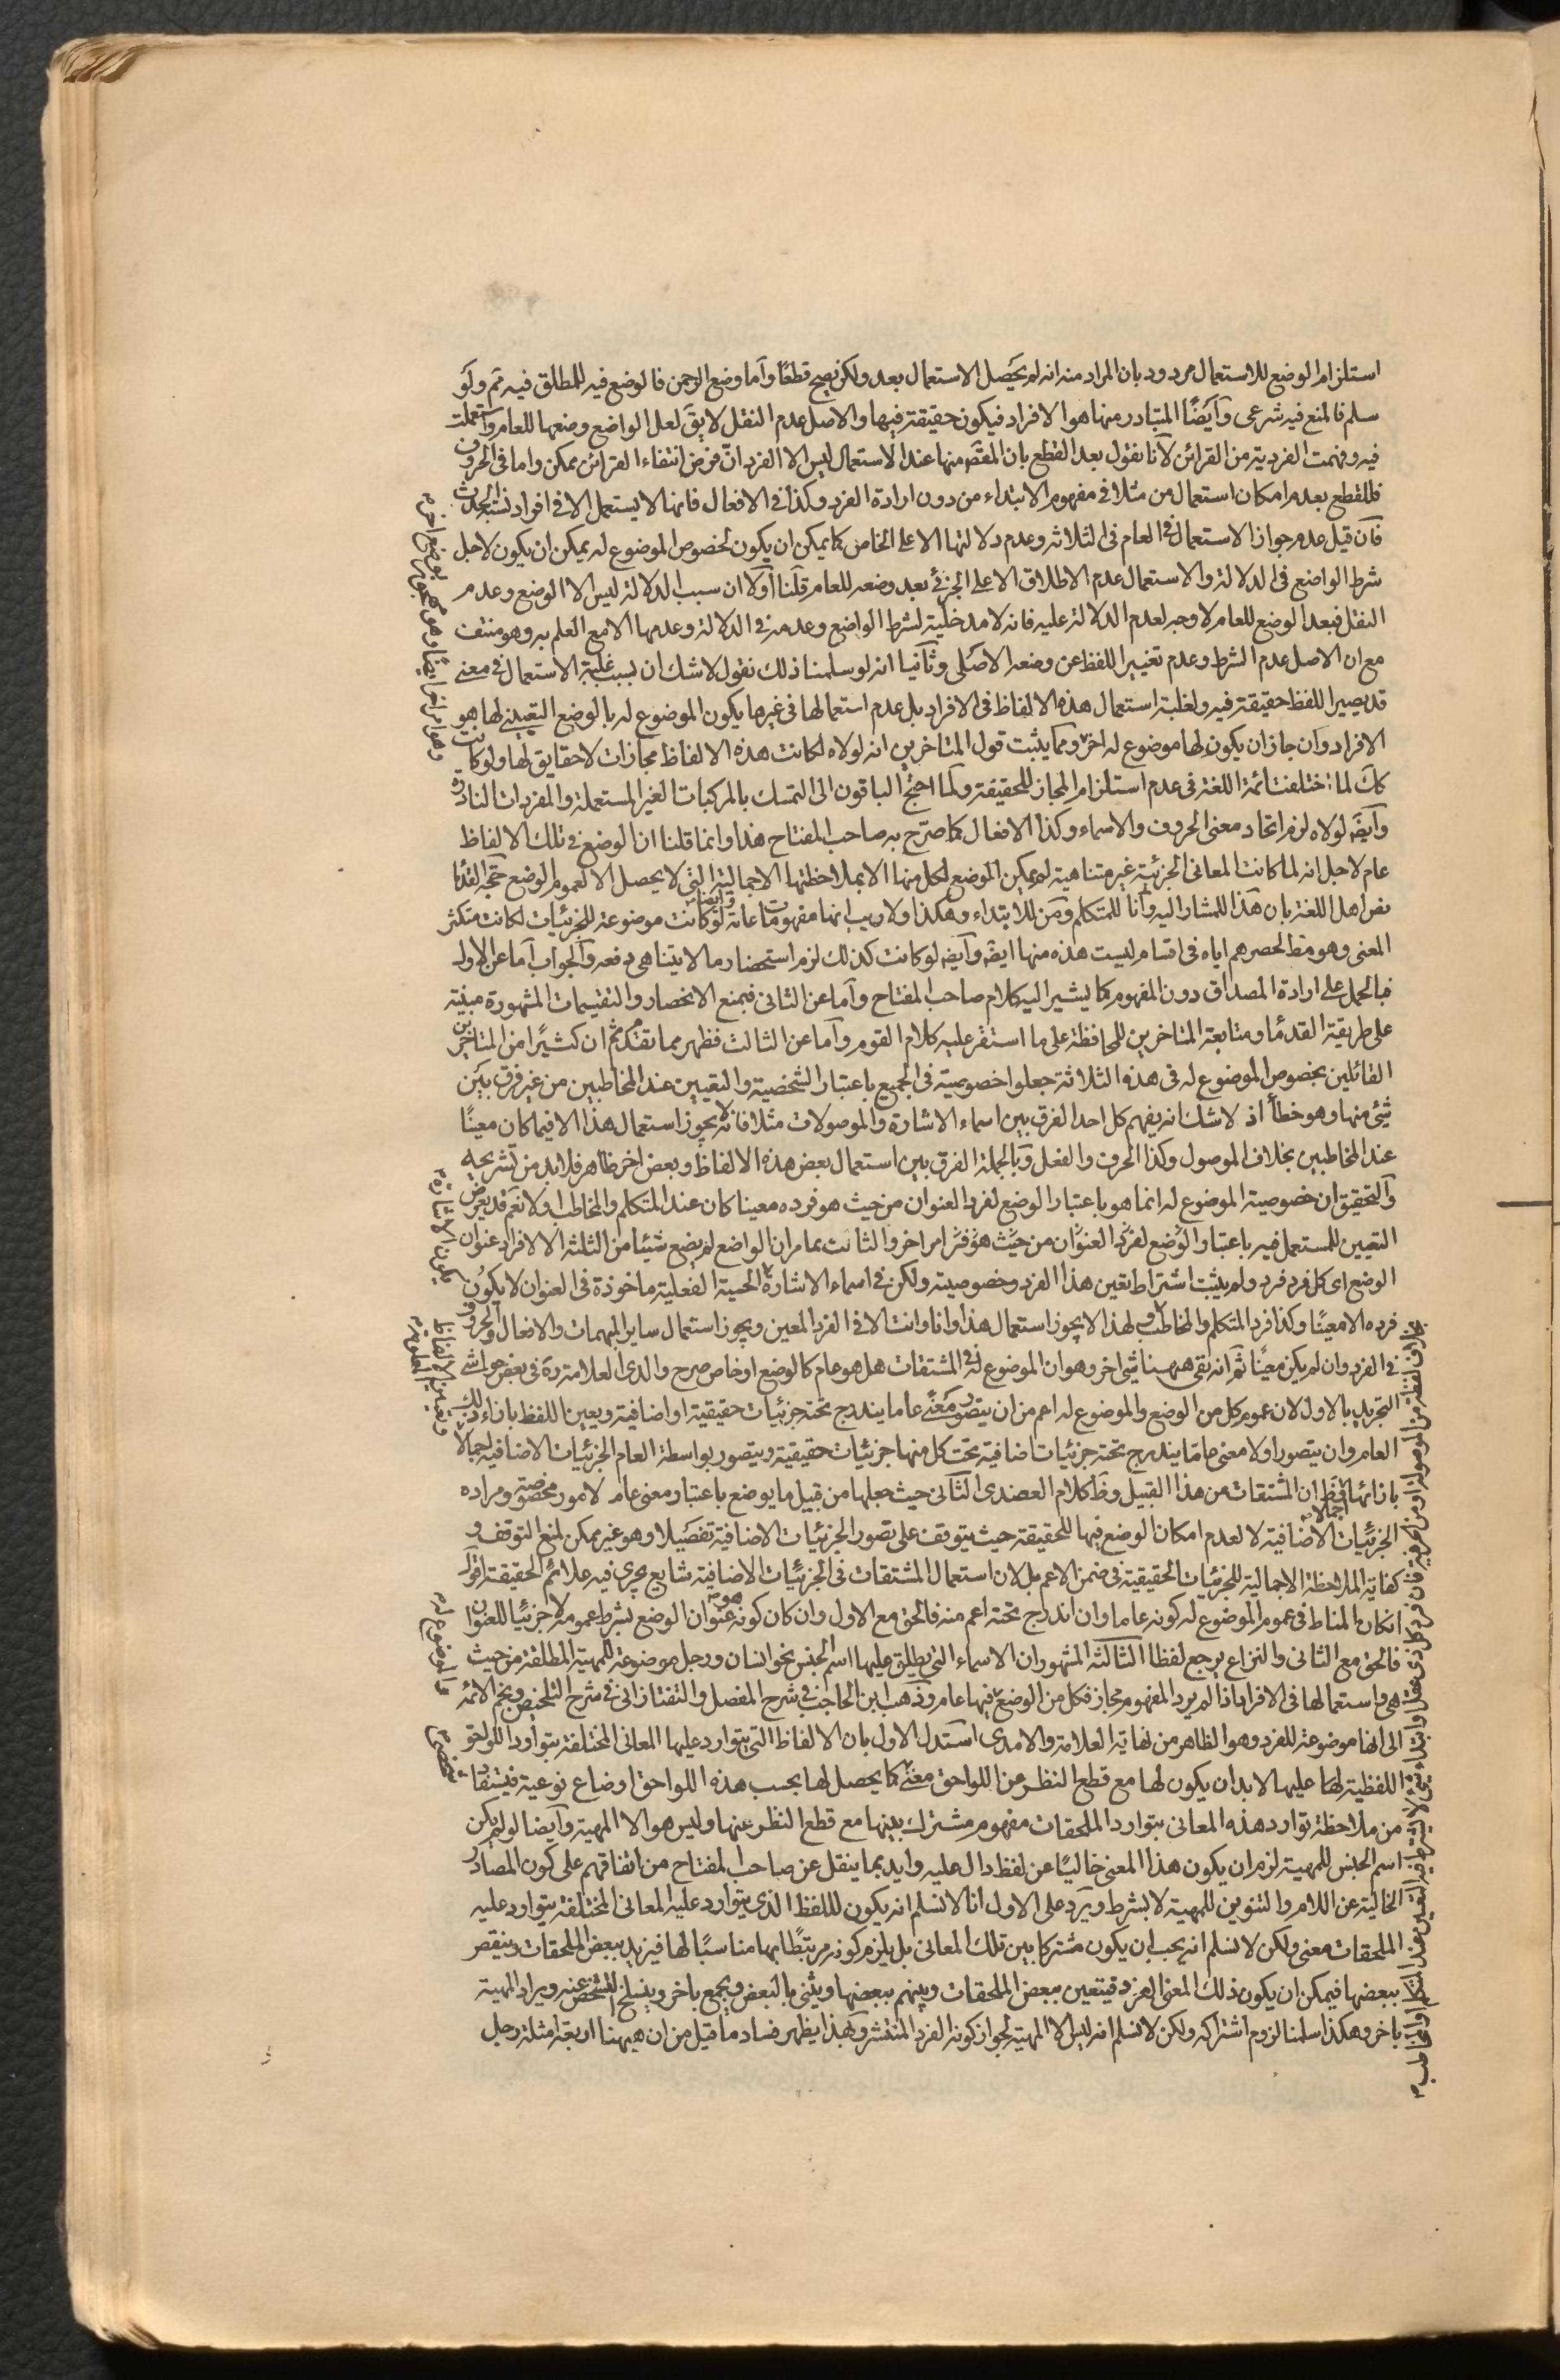 استلزام الوضع للاستعمال مردود بان المراد منه انه لم يحصل الاستعمال بعد ولكن يصح قطعًا وآما وضع الرحمن فالوضع فيه للمطلق فيه ثم ولو
سلم فالمنع فيه شرعى وآيضًا المتبادر منها هو الافراد فيكون حقيقة فيها والاصل عدم النقل لايق لعل الواضع وضعها للعام واستعملت
فيه وفهمت الفردية من القرائن لآنا نقول بعد القطع بان المقصَ منها عند الاستعمال ليس الا الفرد انّ فرض انتفاء القرائن ممكن واما فى الحروف
فللقطع بعدم امكان استعمال من مثلا فى مفهوم الابتداء من دون ارادة الفرد وكذا فى الافعال فانها لا يستعمل الا فى افراد نسبة الحدث
فآن قيل عدم جواز الاستعمال فى العام فى الثلاثة وعدم دلالتها الا على الخاص كما يمكن ان يكون لخصوص الموضوع له يمكن ان يكون لاجل
شرط الواضع فى الدلالة والاستعمال عدم الاطلاق الا على الجزئى بعد وضعه للعام قلنا آولا ان سبب الدلالة ليس الا الوضع وعدم
النقل فبعد الوضع للعام لا وجه لعدم الدلالة عليه فانه لا مدخلية لشرط الواضع وعدمه فى الدلالة وعدمها الا مع العلم به وهو منتف
مع ان الاصل عدم الشرط وعدم تغيير اللفظ عن وضعه الاصلى وثآنيا انه لو سلمنا ذلك نقول لا شك ان بسبب غلبة الاستعمال فى معنى
قد يصير اللفظ حقيقة فيه ولغلبة استعمال هذه الالفاظ فى الافراد بل عدم استعمالها فى غيرها يكون الموضوع له بالوضع التعينى لها هو
الافراد وان جاز ان يكون لها موضوع له اخر ومما يثبت قول المتاخرين انه لولاه لكانت هذه الالفاظ مجازات لا حقايق لها ولو كانت
كك لما اختلفت ائمة اللغة فى عدم استلزام المجاز للحقيقة ولما احتج الباقون الى التمسك بالمركبات الغير المستعملة والمفردات النادرة
وآيضَ لولاه لزم اتحاد معنى الحروف والاسماء وكذا الافعال كما صرّح به صاحب المفتاح هذا وانما قلنا ان الوضع فى تلك الالفاظ
عام لاجل انه لما كانت المعانى الجزئية غير متناهية لم يمكن الوضع لكل منها الا بملاحظتها الاجمالية التى لا يحصل الا لعموم الوضع حجّة القدماء
نص اهل اللغة بان هذا للمشار اليه وآنا للمتكلم ومن للابتداء وهكذا ولا ريب انها مفهومات عامة وآيضا لو كانت موضوعة للجزئيات لكانت متكثر
المعنى وهو مط لحصرهم اياه فى اقسام ليست هذه منها ايضَ وآيضَ لو كانت كذلك لزم استحضار ما لا يتناهى دفعة والجواب آما عن الاول
فبالحمل على ارادة المصداق دون المفهوم كما يشير اليه كلام صاحب المفتاح وآما عن الثانى فبمنع الانحصار والتقسيمات المشهورة مبنية
على طريقة القدماء ومتابعة المتاخرين للمحافظة على ما استقر عليه كلام القوم وآما عن الثالث فظهر مما تقدم ثم ان كثيرًا من المتاخرين
القائلين بخصوص الموضوع له فى هذه الثلاثة جعلوا خصوصيته فى الجميع باعتبار الشخصية والتعيين عند المخاطبين من غير فرق بين
شئ منها وهو خطأ اذ لا شك انه يفهم كل احد الفرق بين اسماء الاشارة والموصولات مثلا فانه لا يجوز استعمال هذا الا فيما كان معينًا
عند المخاطبين بخلاف الموصول وكذا الحرف والفعل وبالجملة الفرق بين استعمال بعض هذه الالفاظ وبعض اخر ظاهر فلا بد من تشريحه
والتحقيق ان خصوصية الموضوع له انما هو باعتبار الوضع لفرد العنوان من حيث هو فرده معينا كان عند المتكلم والمخاطب او لا نعم قد يعرض
التعيين للمستعمل فيه باعتبار الوضع لفرد العنوان من حيث هو فرد امر اخر والثابت بما مر ان الواضع لم يضع شيئا من الثلثة الا لافراد عنوان
الوضع اى كل فرد فرد ولم يثبت اشتراط تعين هذا الفرد وخصوصيته ولكن فى اسماء الاشارة الحسية الفعلية ماخوذة فى العنوان لا يكون
فرده الا معينًا وكذا فرد المتكلم والمخاطب ولهذا لا يجوز استعمال هذا وانا وانت الا فى الفرد المعين ويجوز استعمال ساير المبهمات والافعال والحروف
فى الفرد وان لم يكن معينًا ثم انه بقى ههنا شئ اخر وهو ان الموضوع له فى المشتقات هل هو عام كالوضع او خاص صرح والدى العلامة ره فى بعض حواشى
التجريد بالاول لان عموم كل من الوضع والموضوع له اعم من ان يتصور معنًى عاما يندرج تحته جزئيات حقيقية او اضافية ويعين اللفظ بازاء ذلك
العام وان يتصور اولا معنى عاما يندرج تحته جزئيات اضافية تحت كل منها جزئيات حقيقية ويتصور بواسطة العام الجزئيات الاضافية اجمالا
بازائها فظ ان المشتقات من هذا القبيل وظَ كلام العضدى الثآنى حيث جعلها من قبيل ما يوضع باعتبار معنى عام لامور مخصوصة ومراده
الجزئيات الاضافية لا لعدم امكان الوضع فيها للحقيقة حيث يتوقف على تصور الجزئيات الاضافية تفصيلا وهو غير ممكن لمنع التوقف و
كفاية الملاحظة الاجمالية للجزئيات الحقيقية فى ضمن الاعم بل لان استعمال المشتقات فى الجزئيات الاضافية شايع يجرى فيه علائم الحقيقة اقول
ان كان المناط فى عموم الموضوع له كونه عاما وان اندرج تحته اعم منه فالحق مع الاول وان كان كونه عنوان الوضع بشرط عمومه لا جزئيا للعنوان
فالحق مع الثانى والنزاع يرجع لفظا الثآلثة المشهور ان الاسماء التى يطلق عليها اسم الجنس نحو انسان ورجل موضوعة للمهية المطلقة من حيث
هى واستعمالها فى الافراد اذا لم يرد المفهوم مجاز فكل من الوضع فيها عام وذهب ابن الحاجب فى شرح المفصل والتفتازانى فى شرح التلخيص ونجم الائمة
الى انها موضوعة للفرد وهو الظاهر من نهاية العلامة والامدى استدل الاول بان الالفاظ التى يتوارد عليها المعانى المختلفة بتوارد اللواحق
اللفظية لها عليها لا بد ان يكون لها مع قطع النظر عن اللواحق معنًى كما يحصل لها بحسب هذه اللواحق اوضاع نوعية فيستفاد
من ملاحظة توارد هذه المعانى بتوارد الملحقات مفهوم مشترك بينها مع قطع النظر عنها وليس هو الا المهية وآيضا لو لم يكن
اسم الجنس للمهية لزم ان يكون هذا المعنى خاليًا عن لفظ دال عليه وايد بما ينقل عن صاحب المفتاح من اتفاقهم على كون المصادر
الخالية عن اللام والتنوين للمهية لا بشرط ويرد على الاول انا لا نسلم انه يكون لللفظ الذى يتوارد عليه المعانى المختلفة بتوارد عليه
الملحقات معنى ولكن لا نسلم انه يجب ان يكون مشتركا بين تلك المعانى بل يلزم كونه مرتبطًا بها مناسبًا لها فيزيد ببعض الملحقات وينقص
ببعضها فيمكن ان يكون ذلك المعنى الفرد فيتعين ببعض الملحقات ويبهم ببعضها ويثنى بالبعض ويجمع باخر وينسلخ التشخص عنه ويراد المهية
باخر وهكذا سلمنا لزوم اشتراكه ولكن لا نسلم انه ليس الا المهية لجواز كونه الفرد المنتشر وبهذا يظهر فساد ما قيل من ان ههنا اربعة امثلة رجل